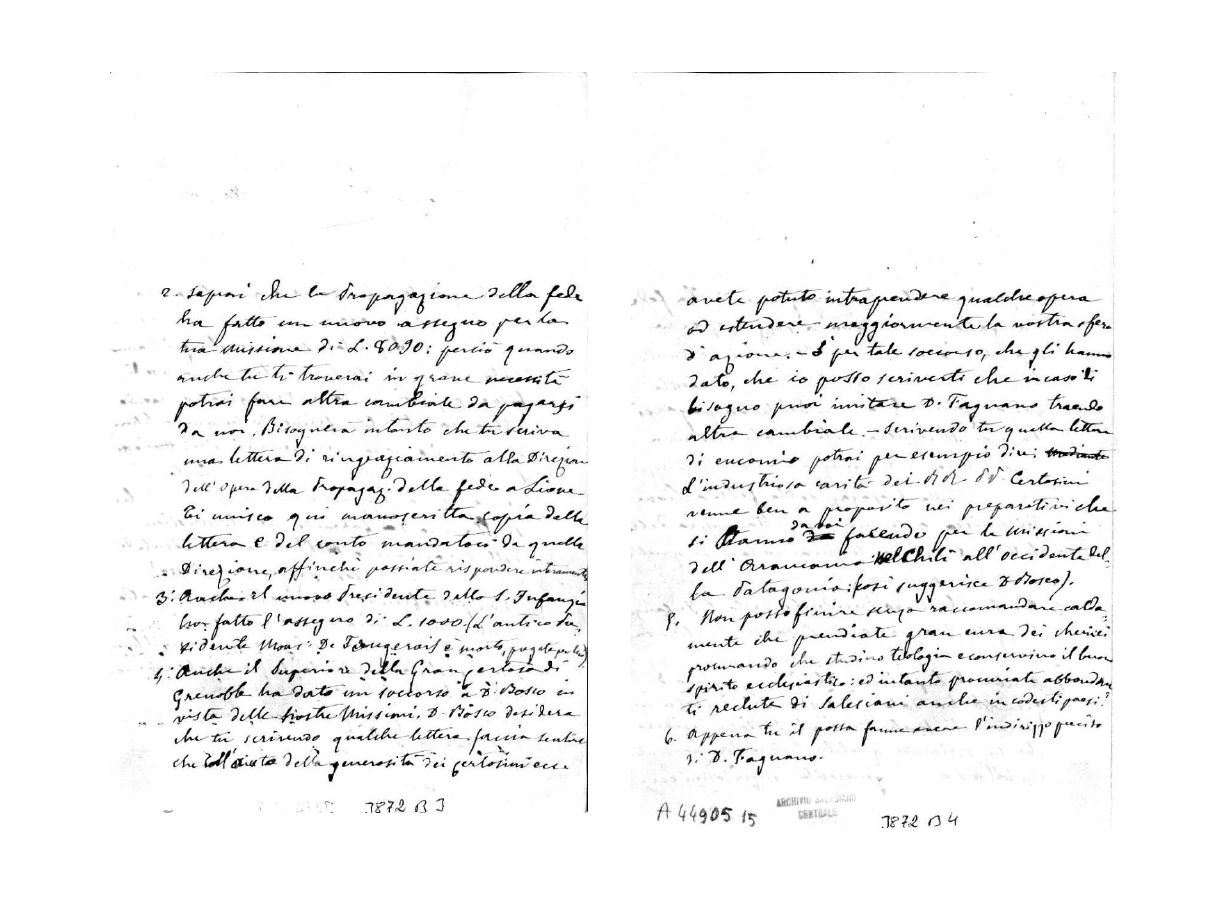 2. Saprai che la Propagazione della fede
ha fatto un nuovo assegno per la
tua missione di L. 8090: perciò quando
anche tu ti troverai in grave necessità
potrai fare altra cambiale da pagarsi
da noi. Bisognerà intanto che tu scriva
una lettera di ringraziamento alla Direzion
dell'Opera della Propagaz. della fede a Lione
Ti unisco qui manoscritta copia della
lettera e del conto mandatoci da quella
Direzione, affinchè possiate rispondere
3: Anche il nuovo Presidente della S. Infanzia
ha fatto l'assegno di L. 1000 (L'antico Pre
sidente Mons. De è morto, pregate per lui)
4: Anche il Superiore della Gran Certosa di
Grenoble ha dato un soccorso a D. Bosco in
vista delle nostre Missioni. D. Bosco desidera
che tu scrivendo qualche lettera faccia sentire
che coll'aiuto della generosità dei Certosini ecc.
J872 B 3
avete potuto intraprendere qualche opera
od estendere maggiormente la vostra sfera
d'azione. - È per tale soccorso, che gli hanno
dato, che io posso scriverti che in caso di
bisogno puoi imitare D. Fagnano traendo
altra cambiale. - Scrivendo tu quella lettera
di encomio potrai per esempio dire: mediante
L'industriosa carità dei RR. PP. Certosini
venne ben a proposito nei preparativi che
da voi
si stanno da facendo per le Missioni
dell' Arraucania nel Chilì all'occidente del-
la Patagonia: (così suggerisce D Bosco).
5. Non posso finire senza raccomandare calda
mente che prendiate gran cura dei chierici
procurando che studino teologia e conservino il buon
spirito ecclesiastico: ed intanto procuriate abbondan
ti reclute di Salesiani anche in codesti paesi.
6. Appena tu il possa fammi avere l'indirizzo preciso
di D. Fagnano.
A 44905 15
ARCHIVIO SALESIANO
CENTRALE
J872 B 4